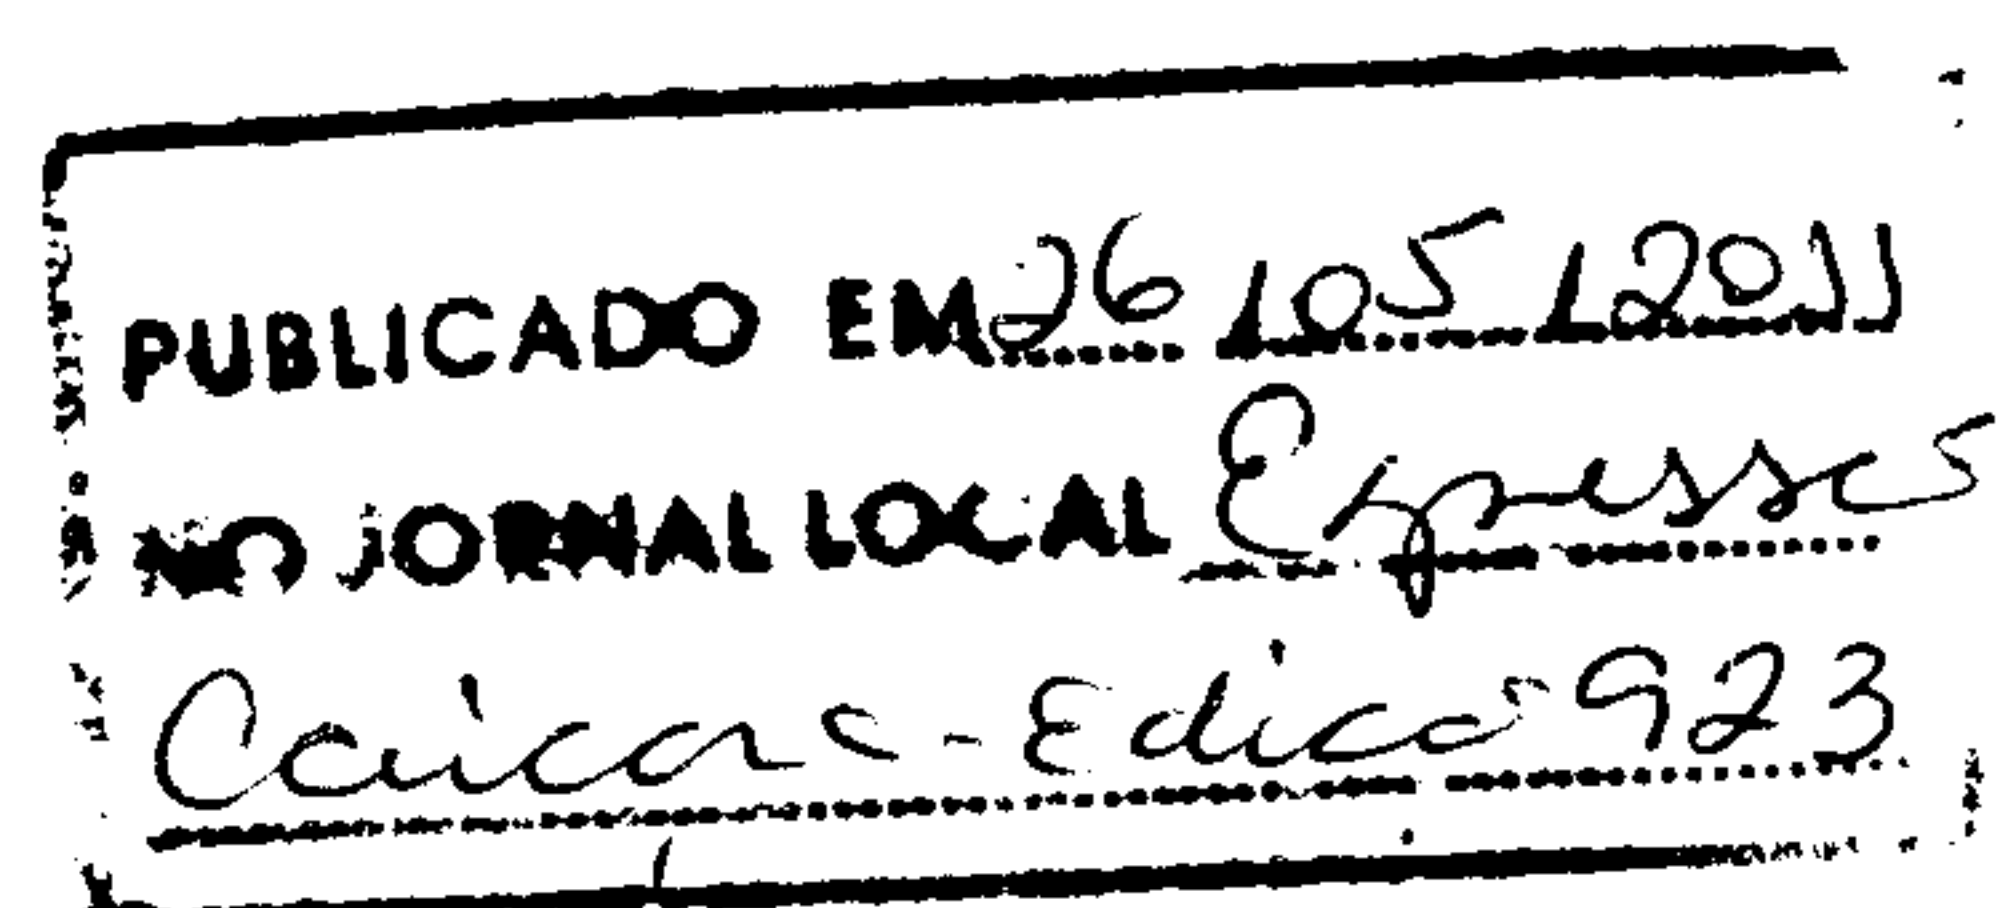 PUBLICADO EM 26/05/2011
NO JORNAL LOCAL Expresso
Caiçara - Edição 923